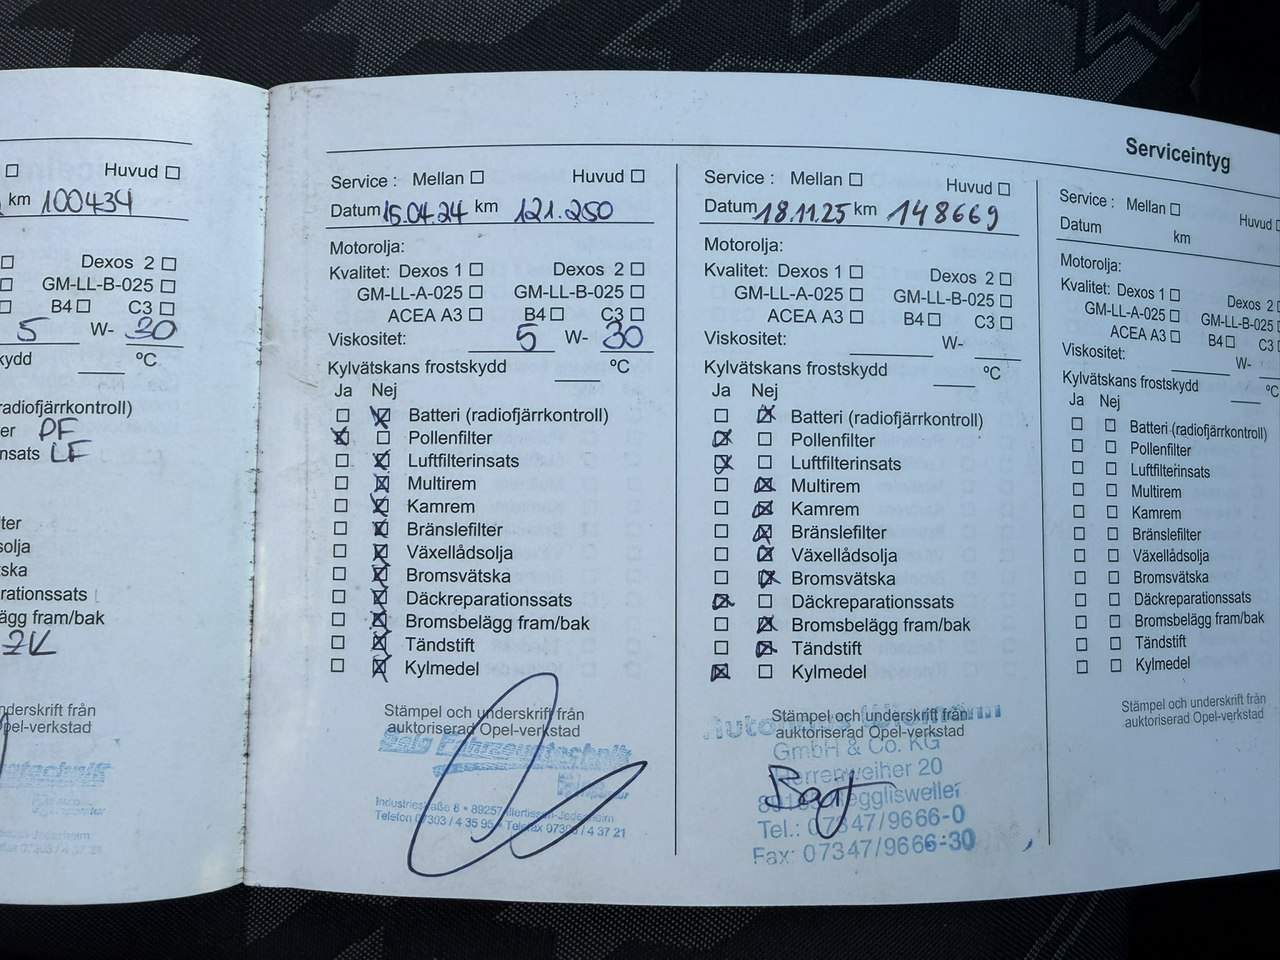 Serviceintyg
Huvud
km 100434
Dexos 2
GM-LL-B-025
B4 C3
5 W- 30
kydd ºC
radiofjärrkontroll)
er PF
nsats LF
ter
solja
ska
rationssats
ägg fram/bak
ZK
nderskrift från
Opel-verkstad
Service : Mellan Huvud
Datum 15.04.24 km 121.250
Motorolja:
Kvalitet: Dexos 1 Dexos 2
GM-LL-A-025 GM-LL-B-025
ACEA A3 B4 C3
Viskositet: 5 W- 30
Kylvätskans frostskydd ºC
Ja Nej
Batteri (radiofjärrkontroll)
Pollenfilter
Luftfilterinsats
Multirem
Kamrem
Bränslefilter
Växellådsolja
Bromsvätska
Däckreparationssats
Bromsbelägg fram/bak
Tändstift
Kylmedel
Stämpel och underskrift från
auktoriserad Opel-verkstad
Fahrzeugtechnik
Industriestraße 6 • 89257 Illertissen-Jedesheim
Telefon 07303 / 4 35 95 • Telefax 07303 / 4 37 21
Service : Mellan Huvud
Datum 18.11.25 km 148669
Motorolja:
Kvalitet: Dexos 1 Dexos 2
GM-LL-A-025 GM-LL-B-025
ACEA A3 B4 C3
Viskositet: W-
Kylvätskans frostskydd ºC
Ja Nej
Batteri (radiofjärrkontroll)
Pollenfilter
Luftfilterinsats
Multirem
Kamrem
Bränslefilter
Växellådsolja
Bromsvätska
Däckreparationssats
Bromsbelägg fram/bak
Tändstift
Kylmedel
Stämpel och underskrift från
auktoriserad Opel-verkstad
GmbH & Co. KG
Herrenweiher 20
Tel.: 07347/9666-0
Fax: 07347/9666-30
Service : Mellan Huvud
Datum km
Motorolja:
Kvalitet: Dexos 1 Dexos 2
GM-LL-A-025 GM-LL-B-025
ACEA A3 B4 C3
Viskositet: W-
Kylvätskans frostskydd ºC
Ja Nej
Batteri (radiofjärrkontroll)
Pollenfilter
Luftfilterinsats
Multirem
Kamrem
Bränslefilter
Växellådsolja
Bromsvätska
Däckreparationssats
Bromsbelägg fram/bak
Tändstift
Kylmedel
Stämpel och underskrift från
auktoriserad Opel-verkstad